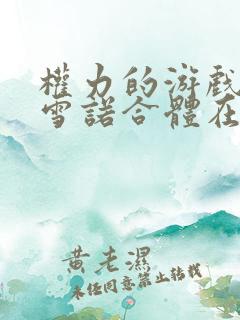 權力的游戲
雪諾合體在
黃老濕
未任同意禁止转载